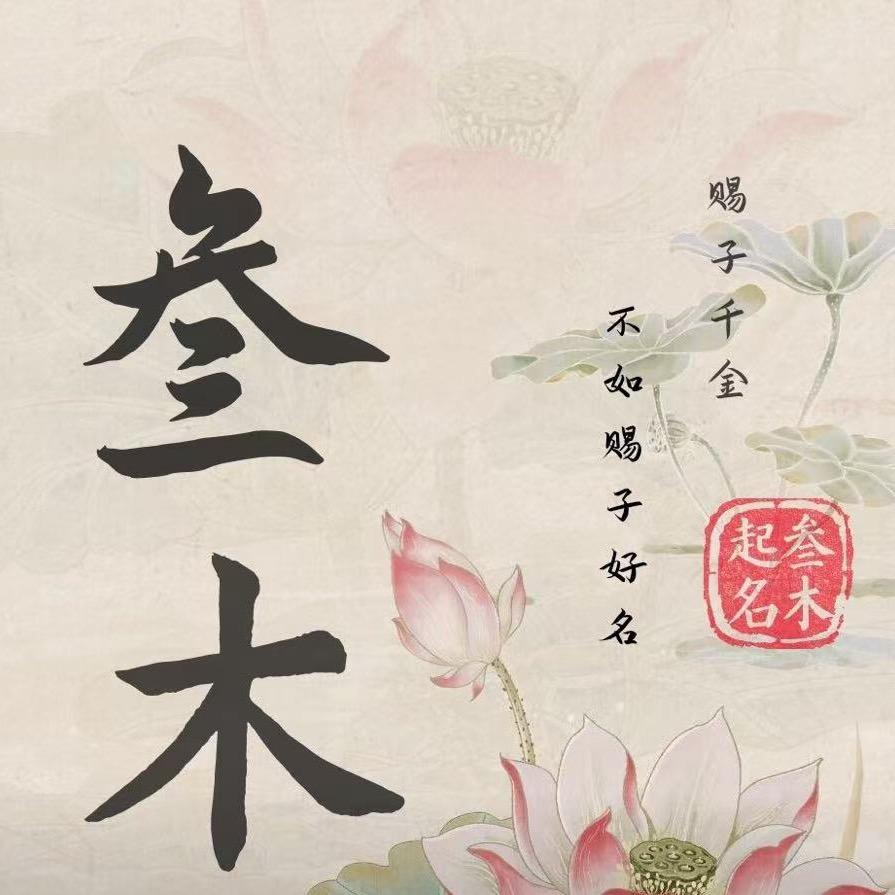 叁木
赐子千金
不如赐子好名
叁木
起名